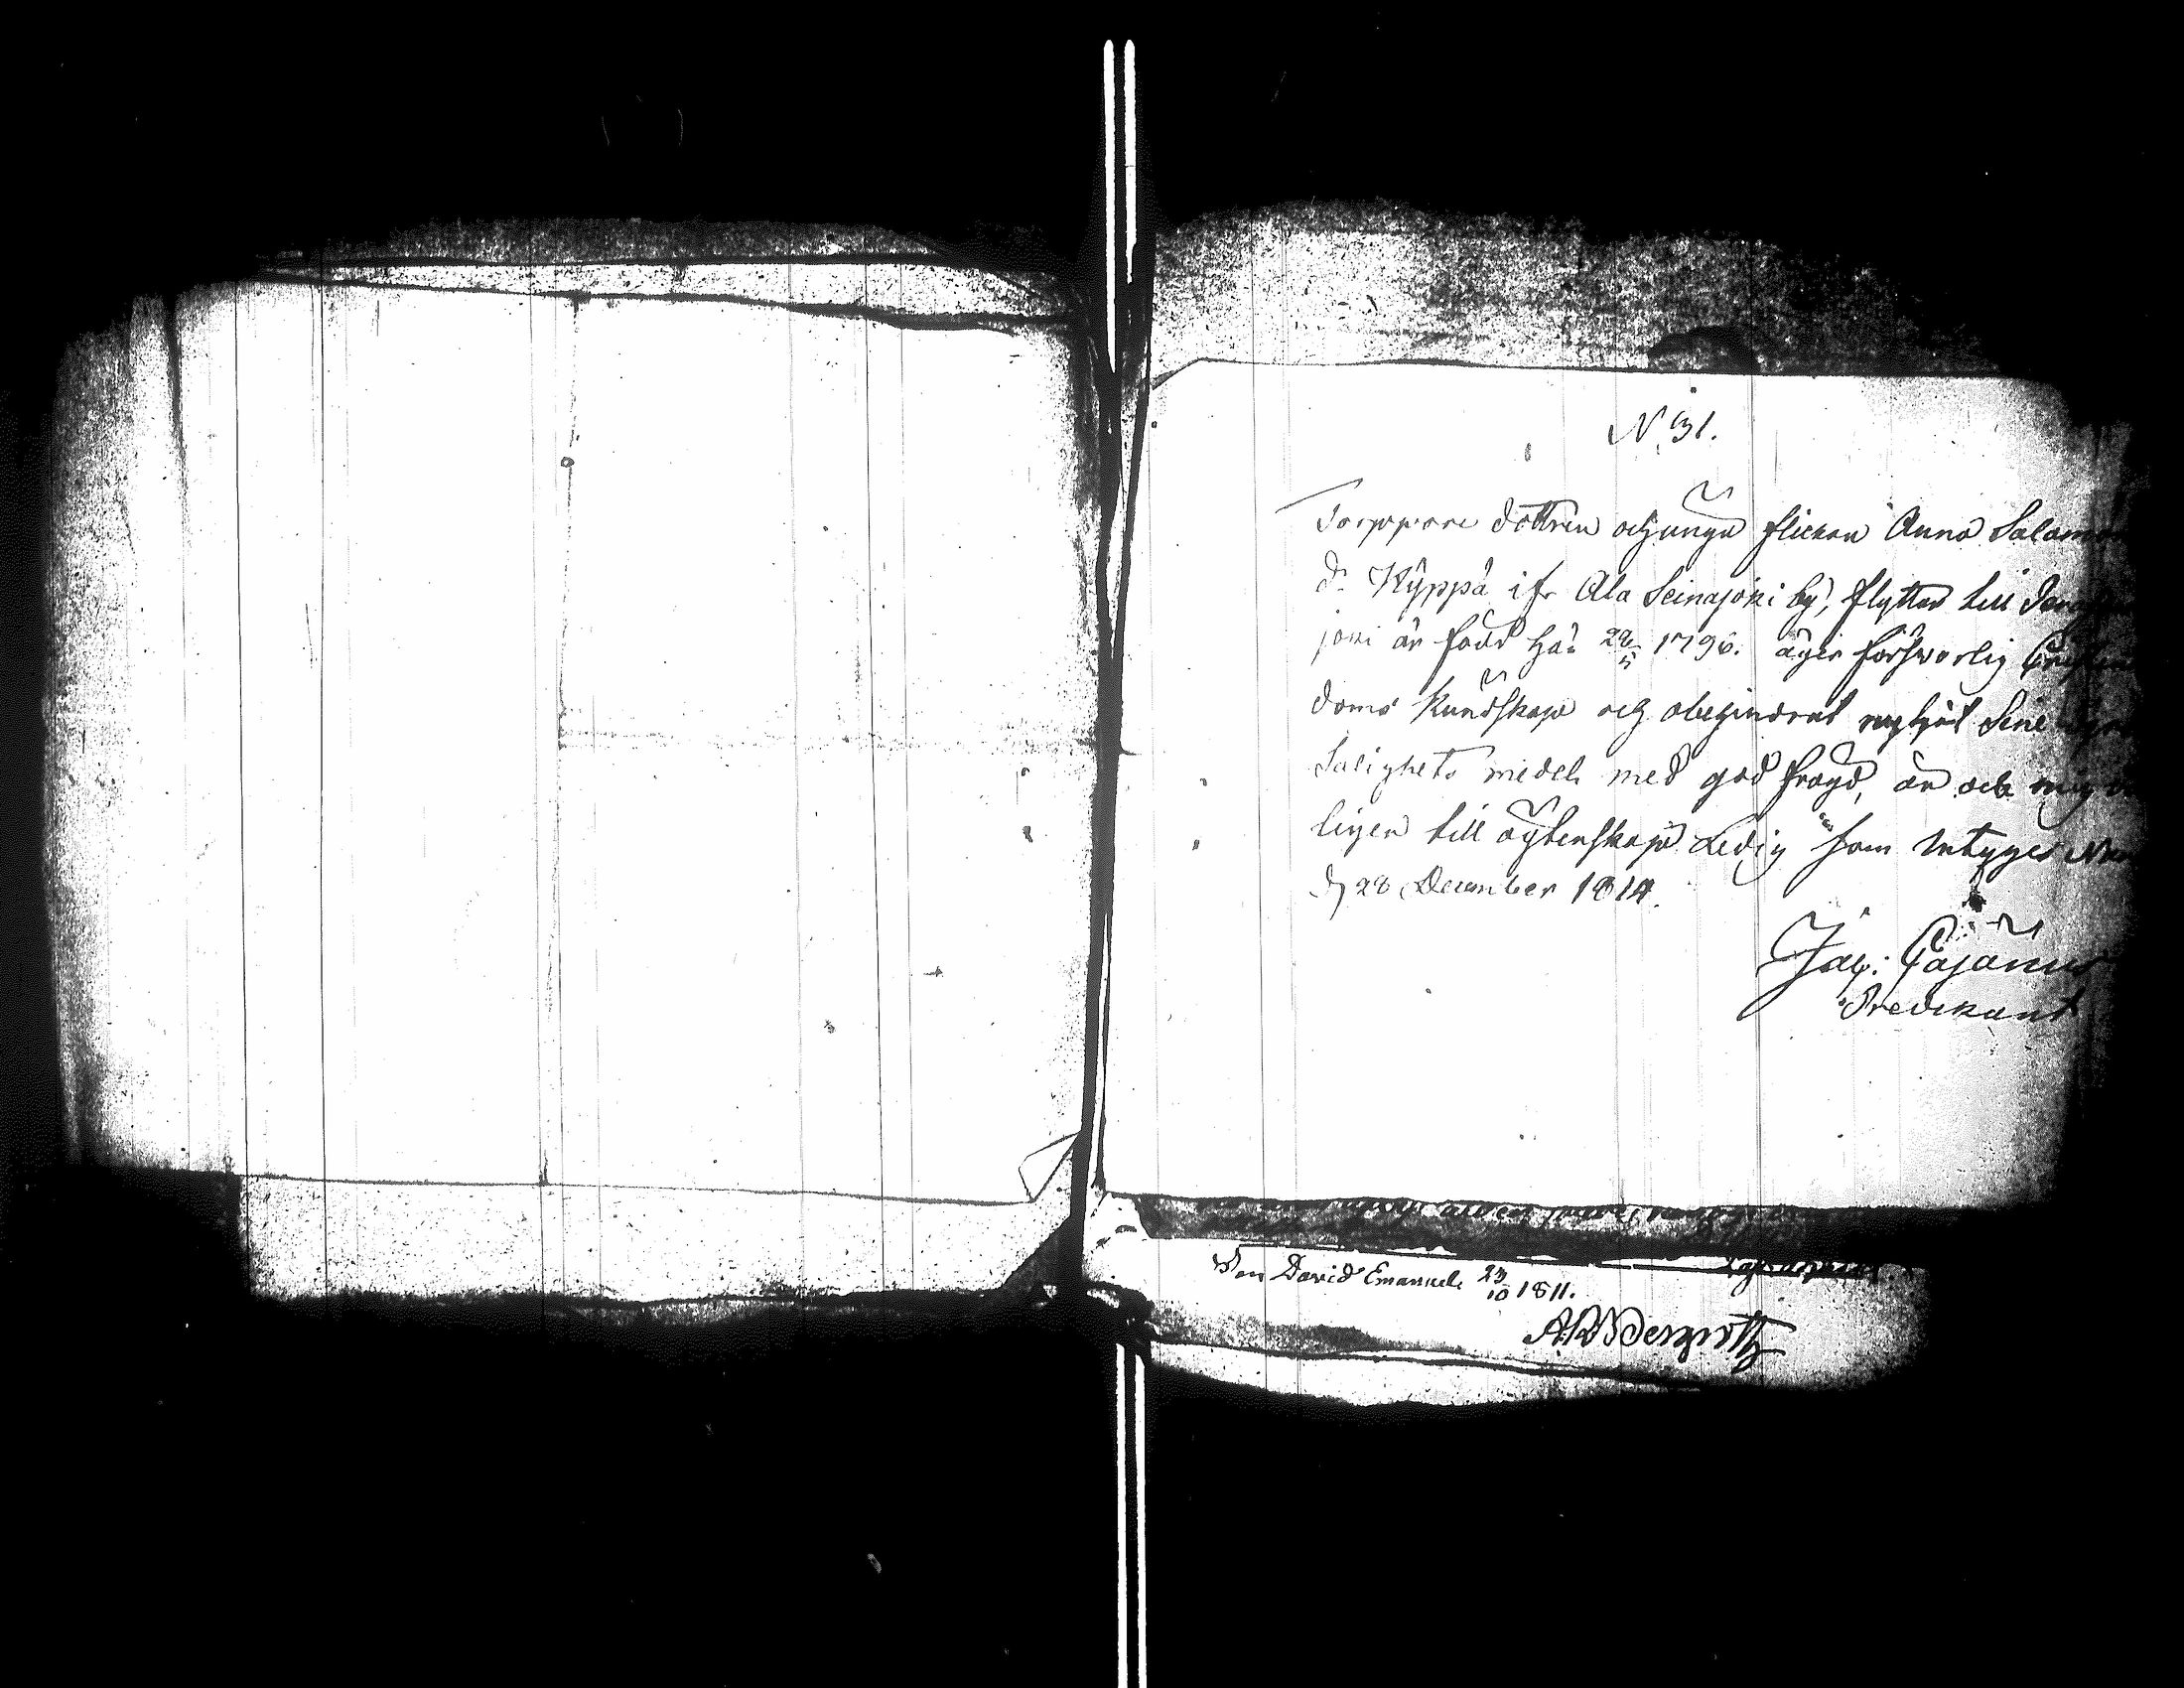 N. 31.
Torppare dottren och unga flickan Anna Salamons
d:r Kyppä ifr Ala Seinajoki by, flyttar till
joki är född här 28/5 1796. äger försvarlig Christen
doms Kundskap och obehindrat nyttjat Sine
Salighets medel med god frägd, är och mig
ligen till ägtenskap Ledig som intygas
d 28 December 1814.
Jac: Cajanus
Predikant
Son David Emanuel 23/10 1811.